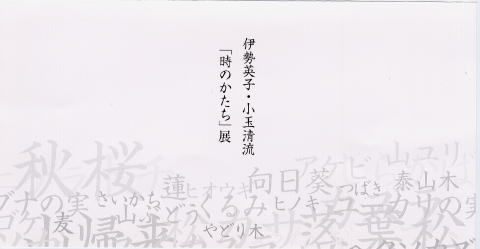 伊勢英子・小玉清流
「時のかたち」展
秋桜
アケビ
山ユリ
蓮
ヒオウギ
向日葵
つばき
泰山木
ブナの実
さいかち
山ぶどう
くるみ
ヒノキ
ユーカリの実
麦
やどり木
落葉松